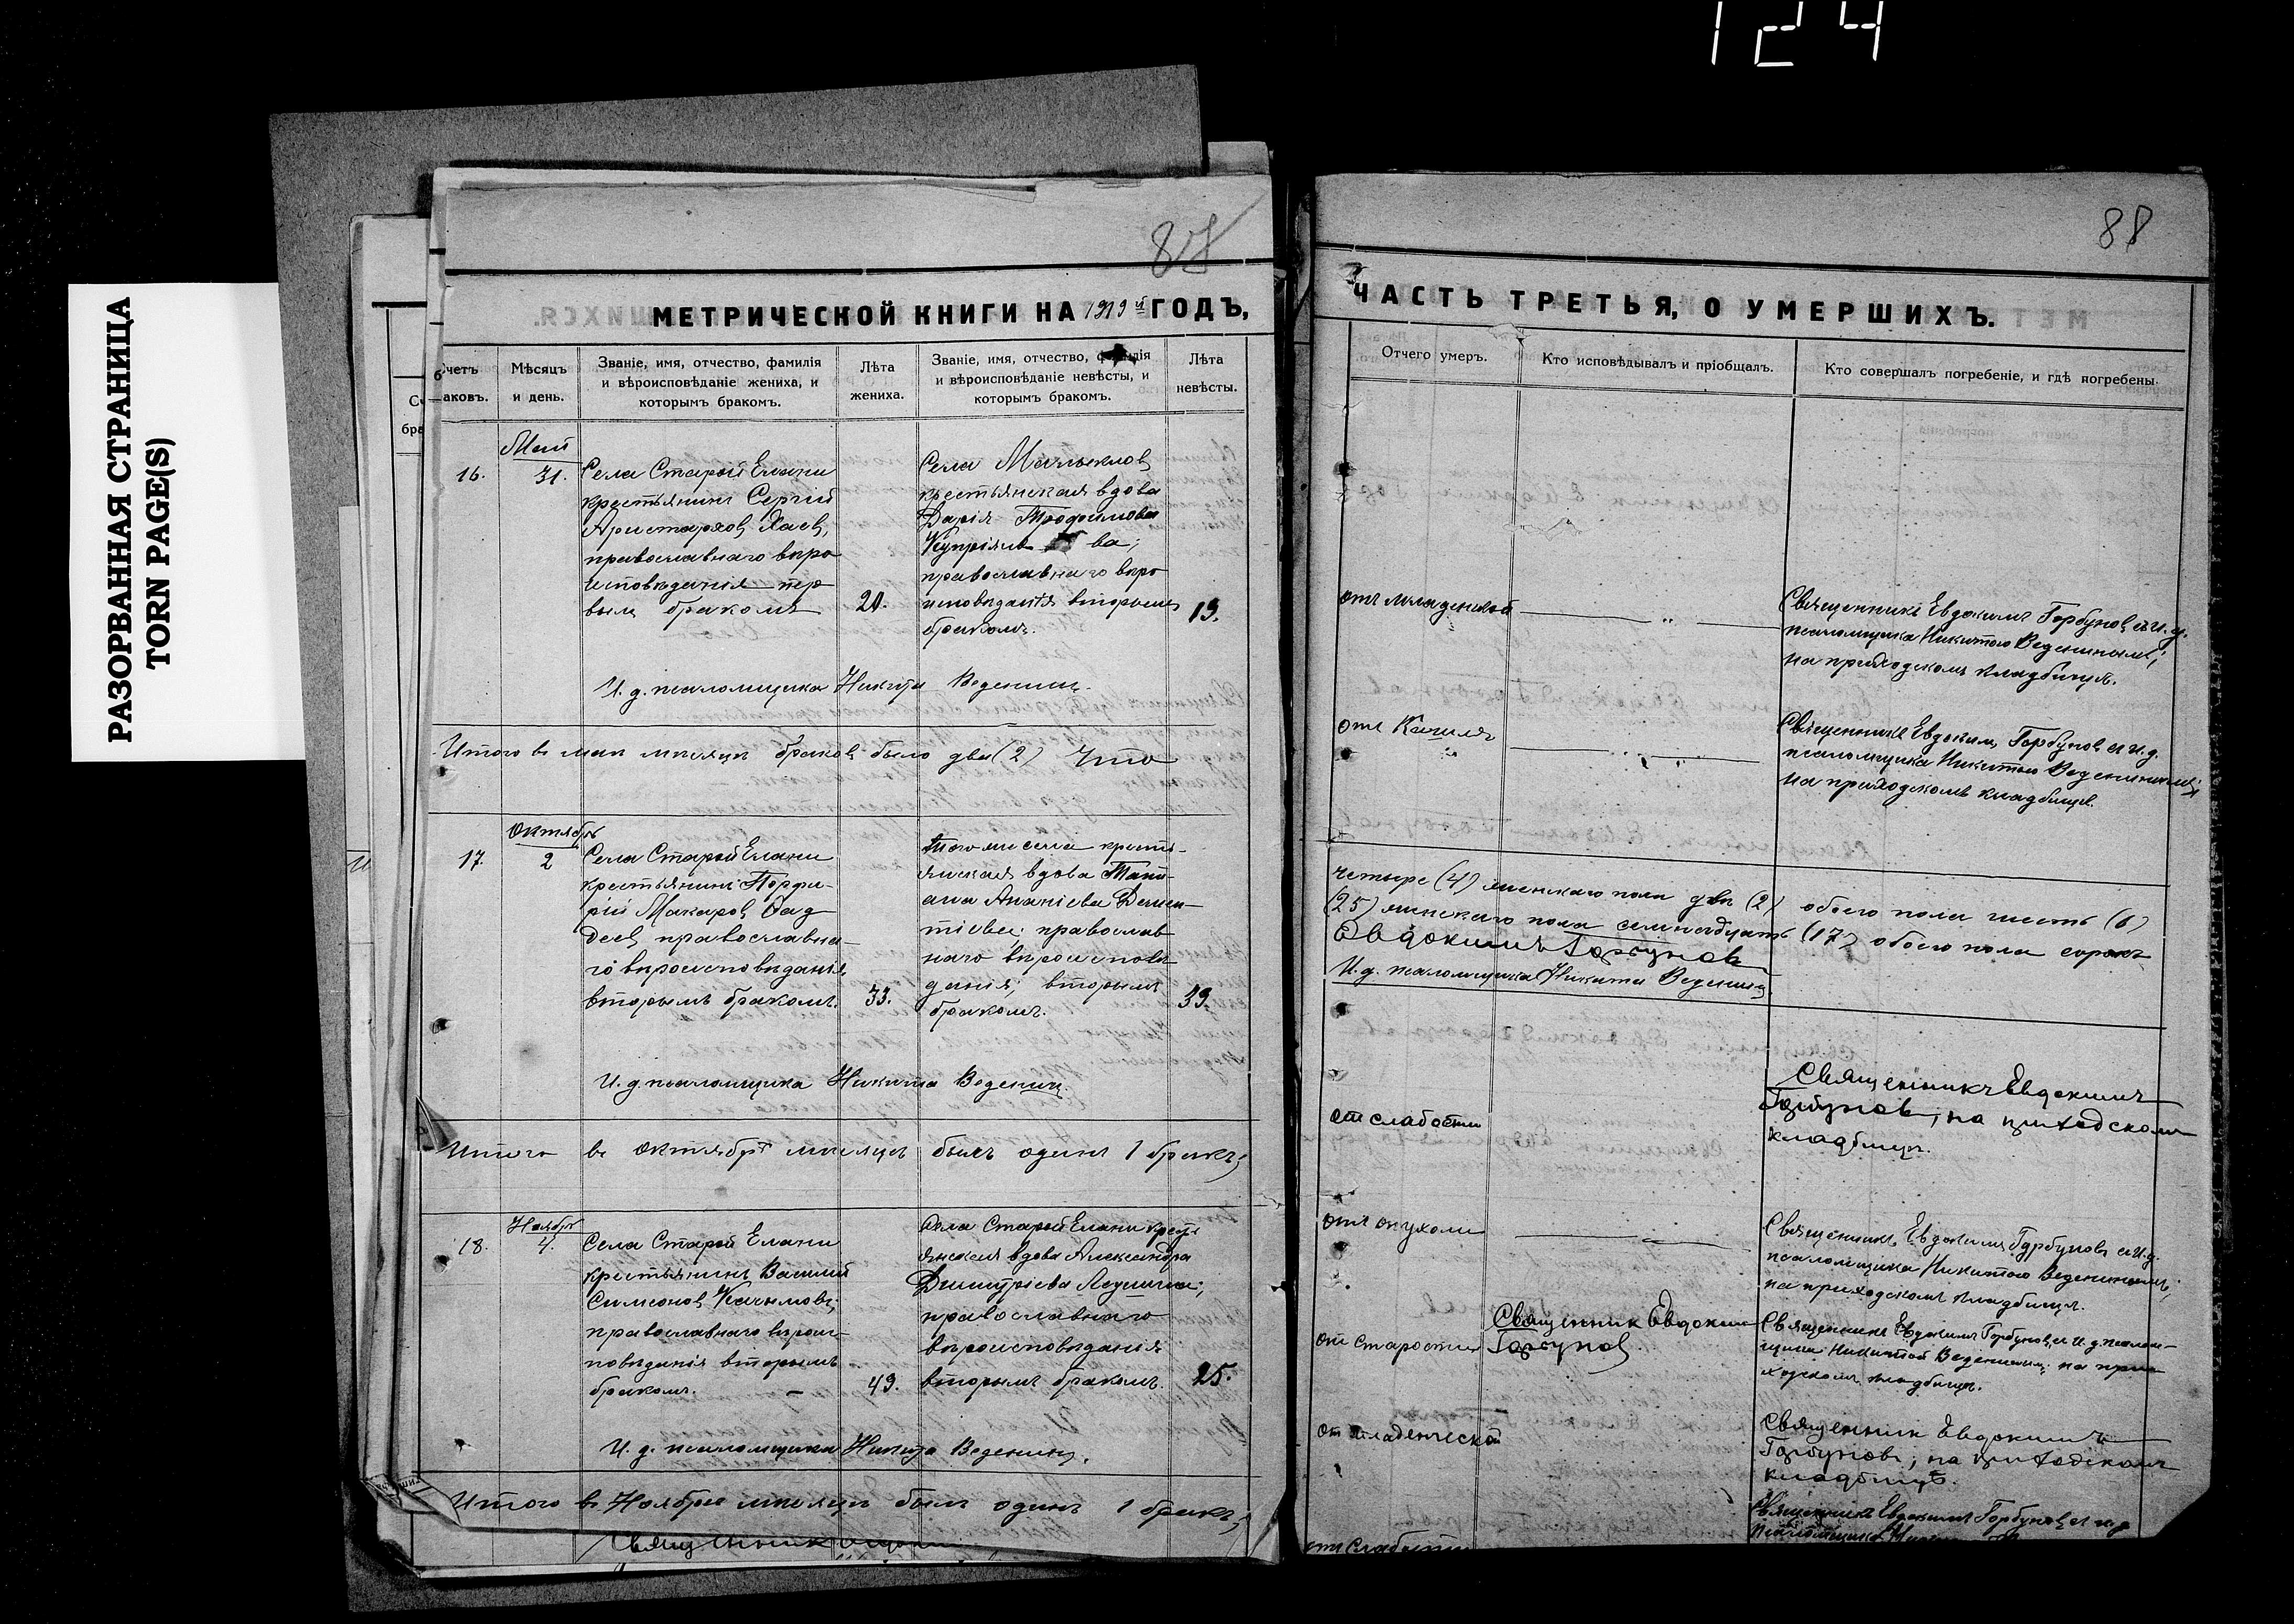 124
РАЗОРВАННАЯ СТРАНИЦА
TORN PAGE(S)
87
МЕТРИЧЕСКОЙ КНИГИ НА 1919й ГОДЪ,
Счетъ
браковъ.
Мѣсяцъ
и день.
Званіе, имя, отчество, фамилія
и вѣроисповѣданіе жениха, и
которымъ бракомъ.
Лѣта
жениха.
Званіе, имя, отчество, фамилія
и вѣроисповѣданіе невѣсты, и
которымъ бракомъ.
Лѣта
невѣсты.
Май
16.
31.
Села Старой Елани
крестьянинъ Сергій
Аристарховъ
православнаго вѣро
исповѣданія пер
вымъ бракомъ
Села
крестьянская вдова
Дарія Трофимова
православнаго вѣро
исповѣданія вторымъ
бракомъ.
19.
И. д. псаломщика Никита Веденинъ.
Итого въ маѣ мѣсяцѣ браковъ было два (2) Что
Октябрь
17.
2
Села Старой Елани
крестьянинъ Порфи-
рій Макаровъ Фад
деевъ православна-
го вѣроисповѣданія
вторымъ бракомъ.
33.
Того же села кресть-
янская вдова Тати-
ана Ананіева Демен-
тіева; православ
наго вѣроисповѣ
данія; вторымъ
бракомъ.
39.
И. д. псаломщика Никита Веденинъ.
Итого въ октябрѣ мѣсяцѣ былъ одинъ 1 бракъ;
Ноябрь
18.
4.
Села Старой Елани
крестьянинъ Василій
Симеоновъ
православнаго вѣроис-
повѣданія вторымъ
бракомъ.
49.
Села Старой Елани кресть
янская вдова Александра
Димитріева
православнаго
вѣроисповѣданія
вторымъ бракомъ.
25.
И. д. псаломщика Никита Веденинъ.
Итого въ Ноябрѣ мѣсяцѣ былъ одинъ 1 бракъ;
Священникъ
88
ЧАСТЬ ТРЕТЬЯ, О УМЕРШИХЪ.
Отчего умеръ.
Кто исповѣдывалъ и пріобщалъ.
Кто совершалъ погребеніе, и гдѣ погребены.
отъ младенской
Священникъ Евдокимъ Горбуновъ съ и. д.
псаломщика Никитою Веденинымъ;
на приходскомъ кладбищѣ.
отъ Кашля
Священникъ Евдокимъ Горбуновъ съ и. д.
псаломщика Никитою Веденинымъ;
на приходскомъ кладбищѣ.
четыре (4) женскаго пола двѣ (2) обоего пола шесть (6)
(25) женскаго пола семнадцать (17) обоего пола сорокъ
Евдокимъ Горбуновъ
И. д. псаломщика Никита Веденинъ.
от слабости
Священникъ Евдокимъ
Горбуновъ, на приходскомъ
кладбищѣ.
отъ опухоли
Священникъ Евдокимъ Горбуновъ съ и. д.
псаломщика Никитою Веденинымъ;
на приходскомъ кладбищѣ.
от старости
Священник Евдоким
Горбуновъ.
Священникъ Евдокимъ Горбуновъ съ и. д. псалом-
щика Никитой Веденинымъ; на при
ходскомъ кладбищѣ.
от младенческой
Священник Евдокимъ
Горбуновъ; на приходскомъ
кладбищѣ.
отъ слабости
Священникъ Евдокимъ Горбуновъ съ и. д.
псаломщика